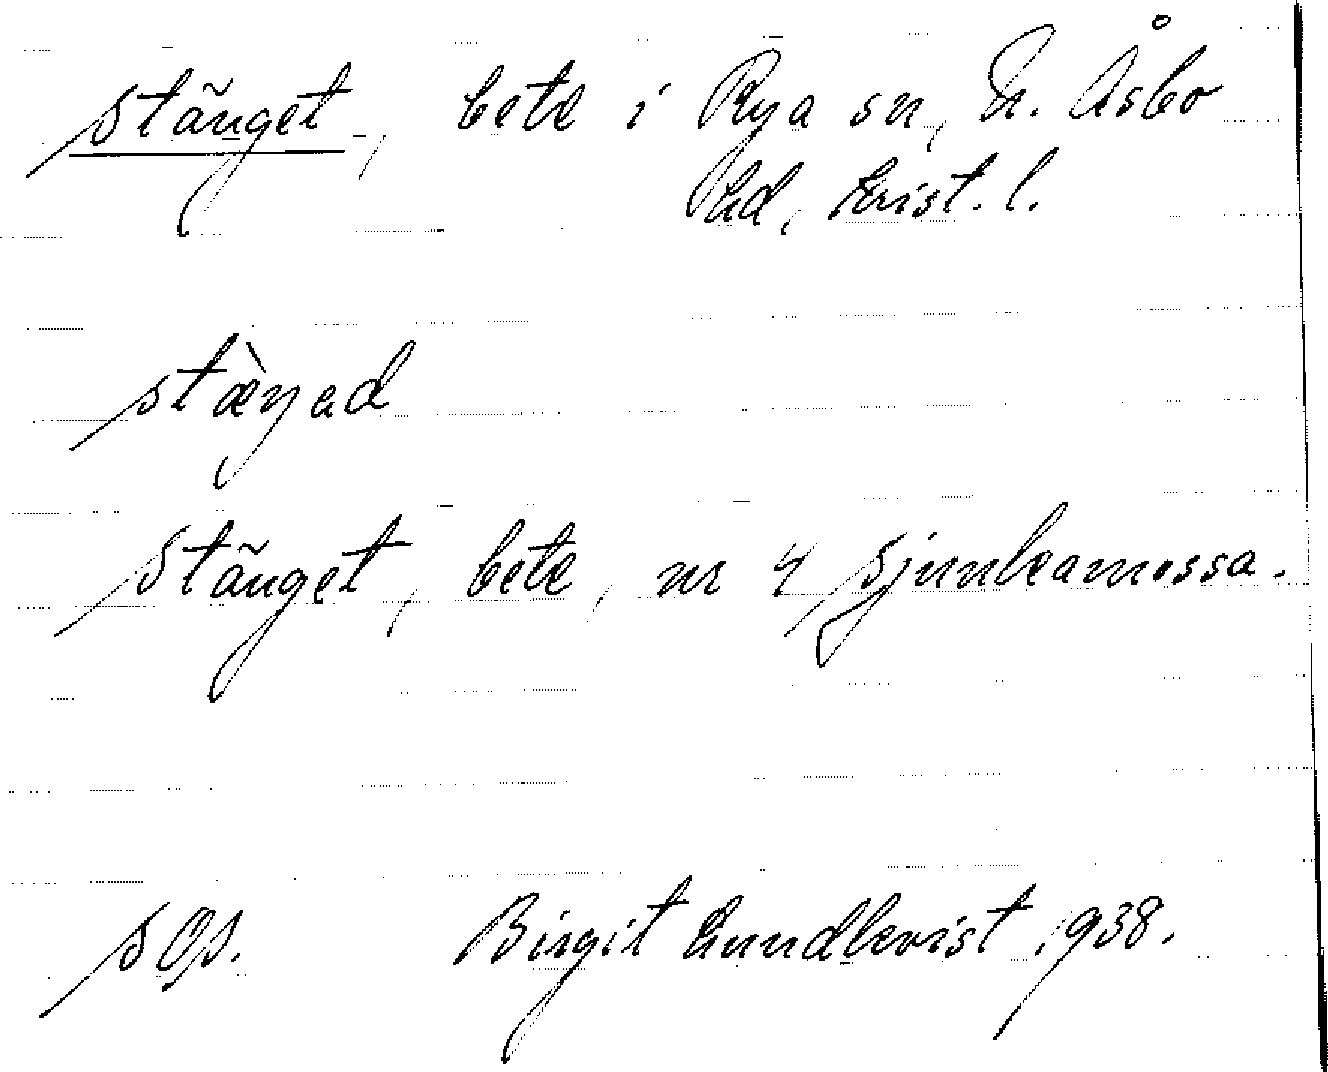 Stänget, bete i Rya sn, N. Åsbo
hd, Krist. l.
stæ̀ŋəd
Stänget, bete, nr 4 Sjunkamossa.
Birgit Lundkvist 1938.